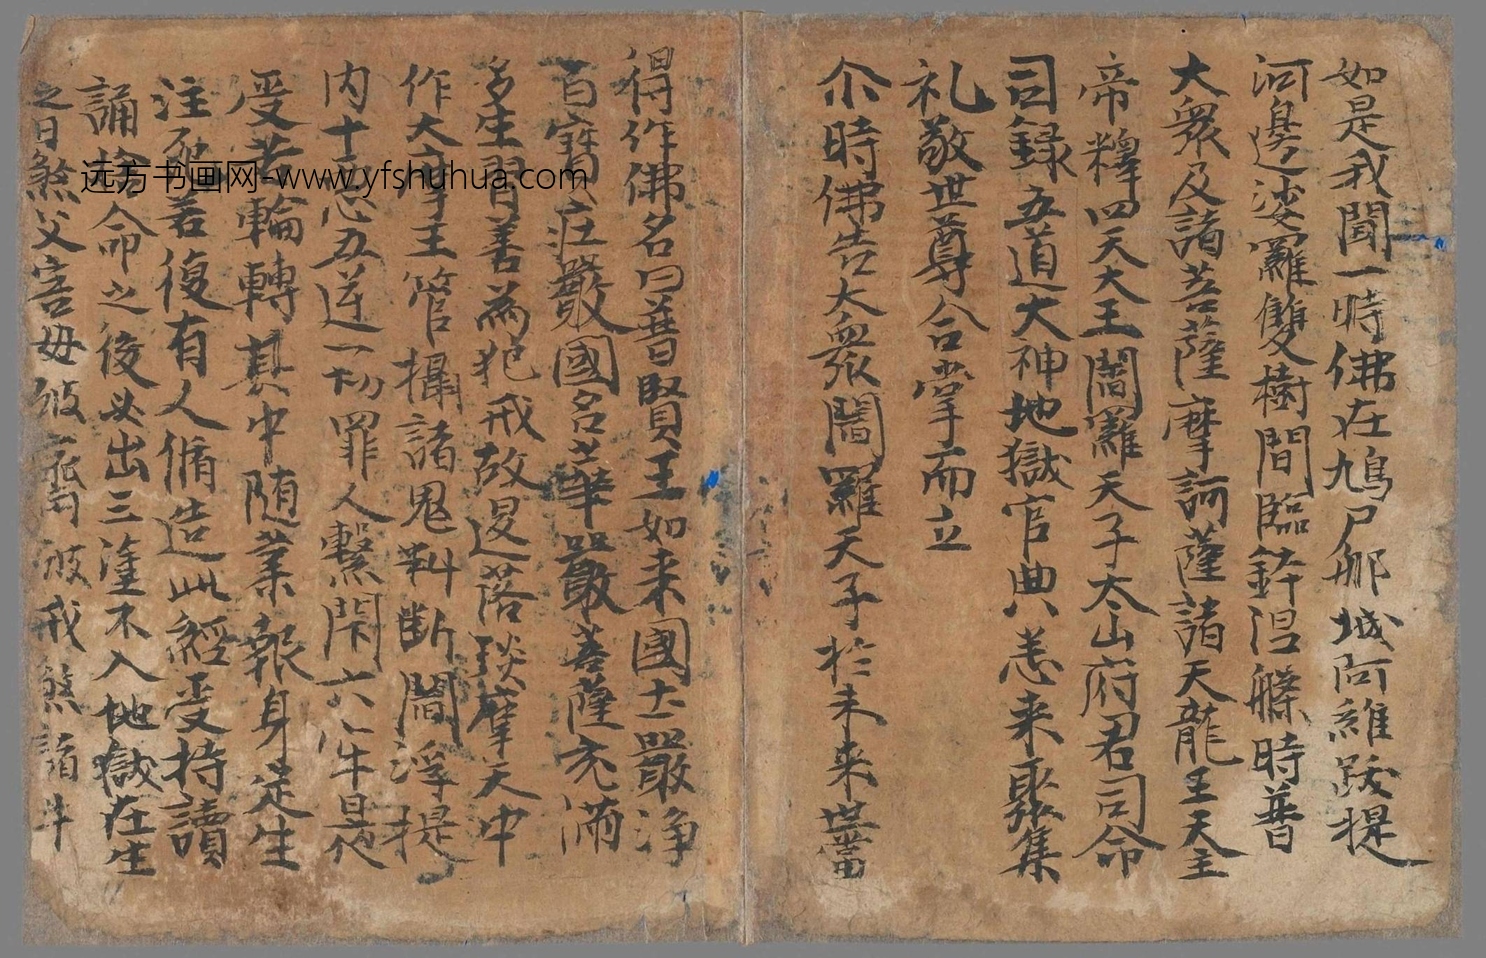 如是我聞一時佛在鳩尸那城阿維跋提
河邊娑羅雙樹間臨鉢涅槃時普
大衆及諸菩薩摩訶薩諸天龍王天主
帝釋四天大王閻羅天子太山府君司命
司録五道大神地獄官典悉来聚集
礼敬世尊合掌而立
尒時佛告大衆閻羅天子於未来世當
得作佛名曰普賢王如来國土嚴净
百寶莊嚴國名華嚴菩薩充滿
多生習善為犯戒故退落琰摩天中
作大摩王管攝諸鬼科断閻浮提
内十惡五逆一切罪人繫閉六牢日夜
受苦輪轉其中随業報身定生
注死若復有人脩造此經受持讀
誦捨命之後必出三塗不入地獄在生
之日煞父害母破齋破戒煞諸牛
远方书画网-www.yfshuhua.com